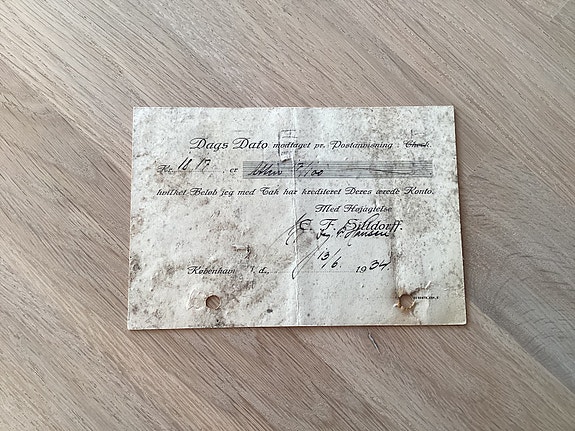 Dags Dato modtaget pr. Postanvisning : Check.
Kr. er /100
hvilket Beløb jeg med Tak har krediteret Deres ærede Konto.
Med Højagtelse
C. F. Silldorff.
Hansen
København d., 13/6. 1934